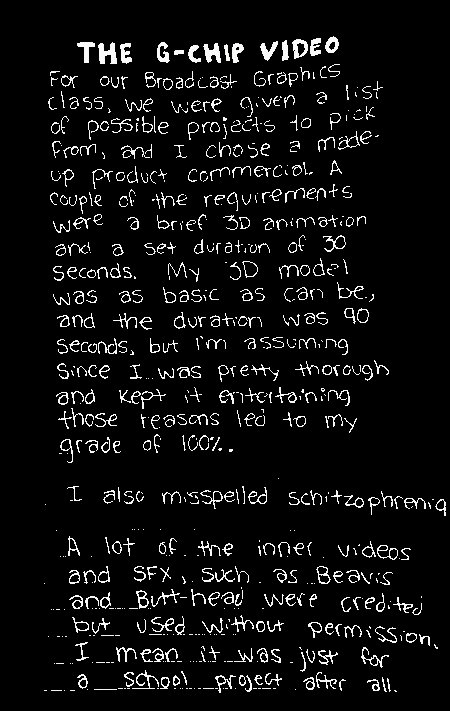 THE G-CHIP VIDEO
For our Broadcast Graphics
class, we were given a list
of possible projects to pick
from, and I chose a made-
up product commercial. A
couple of the requirements
were a brief 3D animation
and a set duration of 30
seconds. My 3D model
was as basic as can be,
and the duration was 90
seconds, but I'm assuming
since I was pretty thorough
and kept it entertaining
those reasons led to my
grade of 100%.
I also misspelled schitzophrenia
A lot of the inner videos
and SFX, such as Beavis
and Butt-head were credited
but used without permission.
I mean it was just for
a school project after all.